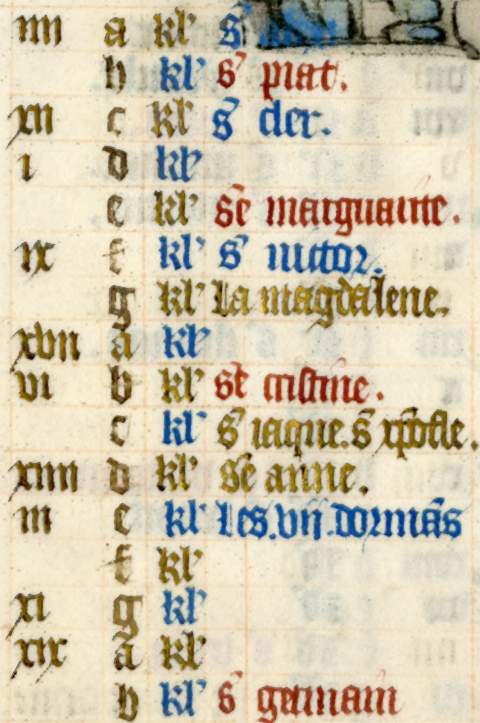 iiii a kl' s'
b kl' s' piat.
xii c kl' s' cler.
i d kl'
e kl' s̄e marguarite.
ix f kl' s' uictor.
g kl' la magdalene.
xvii a kl'
vi b kl' s̄e cristine.
c kl' s' iaque. s̄ xp̄ofle.
xiiii d kl' s̄e anne.
iii e kl' les.vij.dormās
f kl'
xi g kl'
xix a kl'
b kl' s' germain